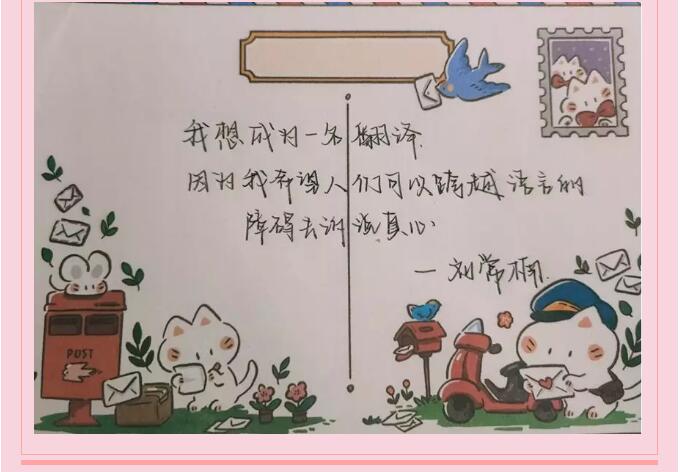 我想成为一名翻译.
因为我希望人们可以跨越语言的
障碍去诉说真心
一刘常桐.
POST